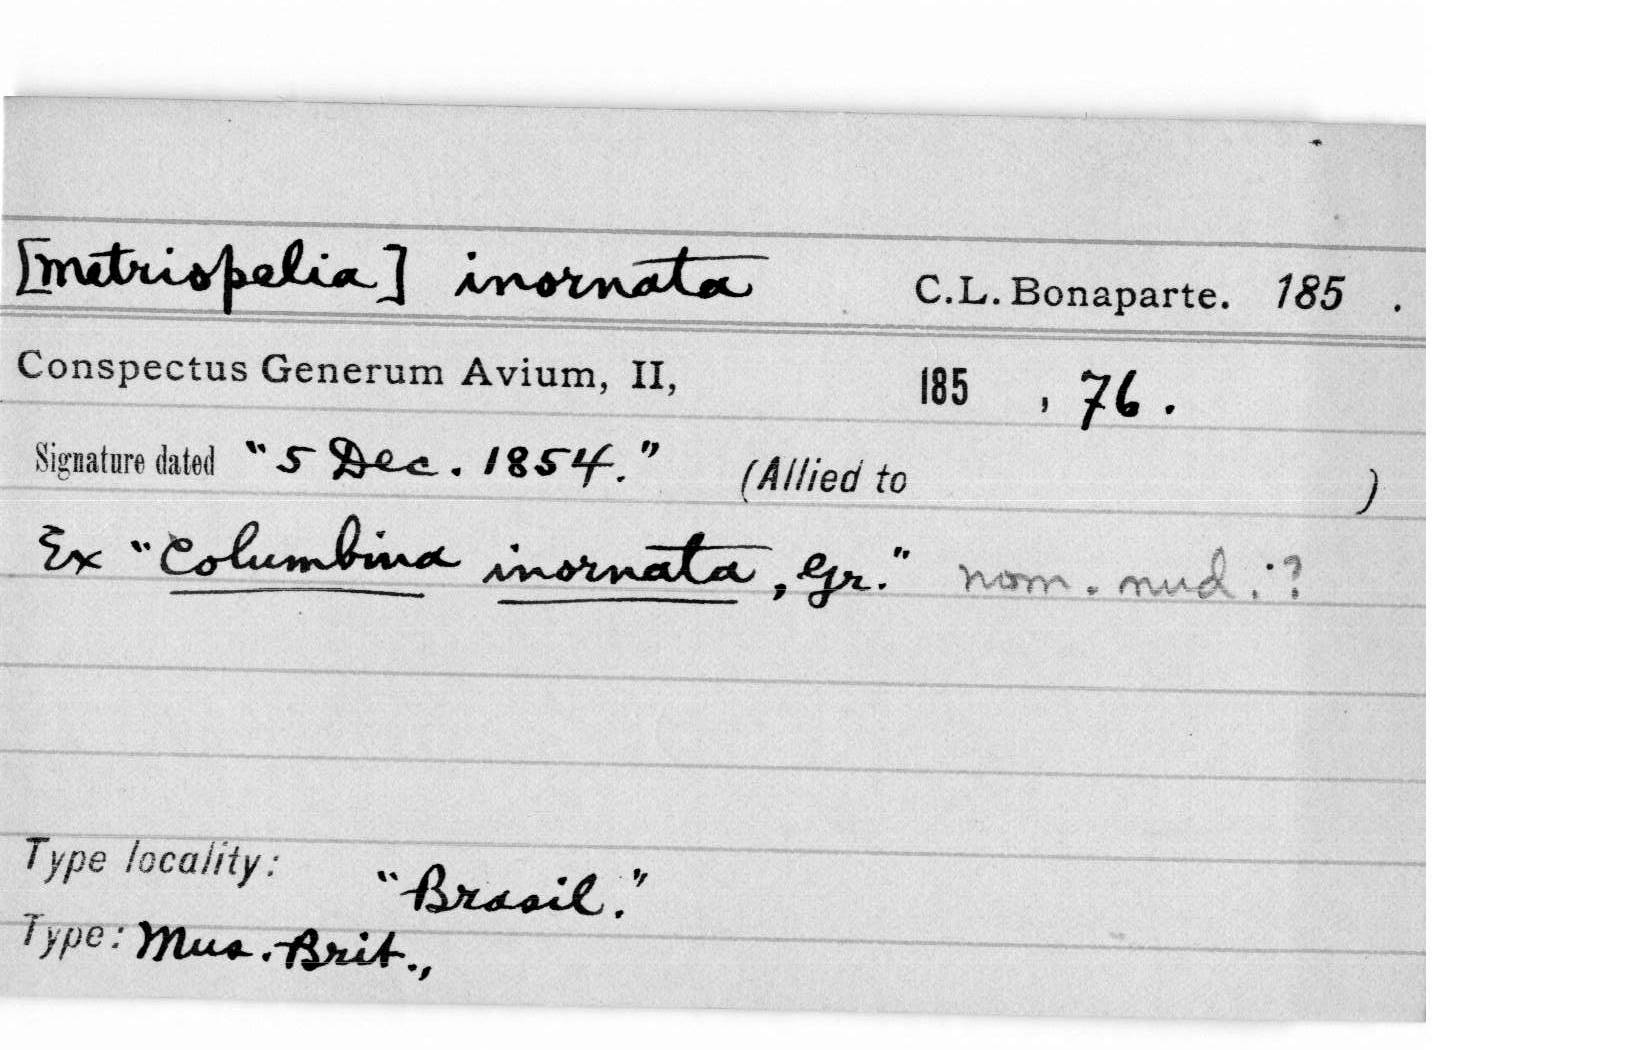 [Metriopelia] inornata C.L. Bonaparte. 185 .
Conspectus Generum Avium, II, 185 , 76.
Signature dated "5 Dec. 1854." (Allied to )
Ex "Columbina inornata, Gr." nom. nud.?
Type locality: "Brasil."
Type: Mus. Brit.,